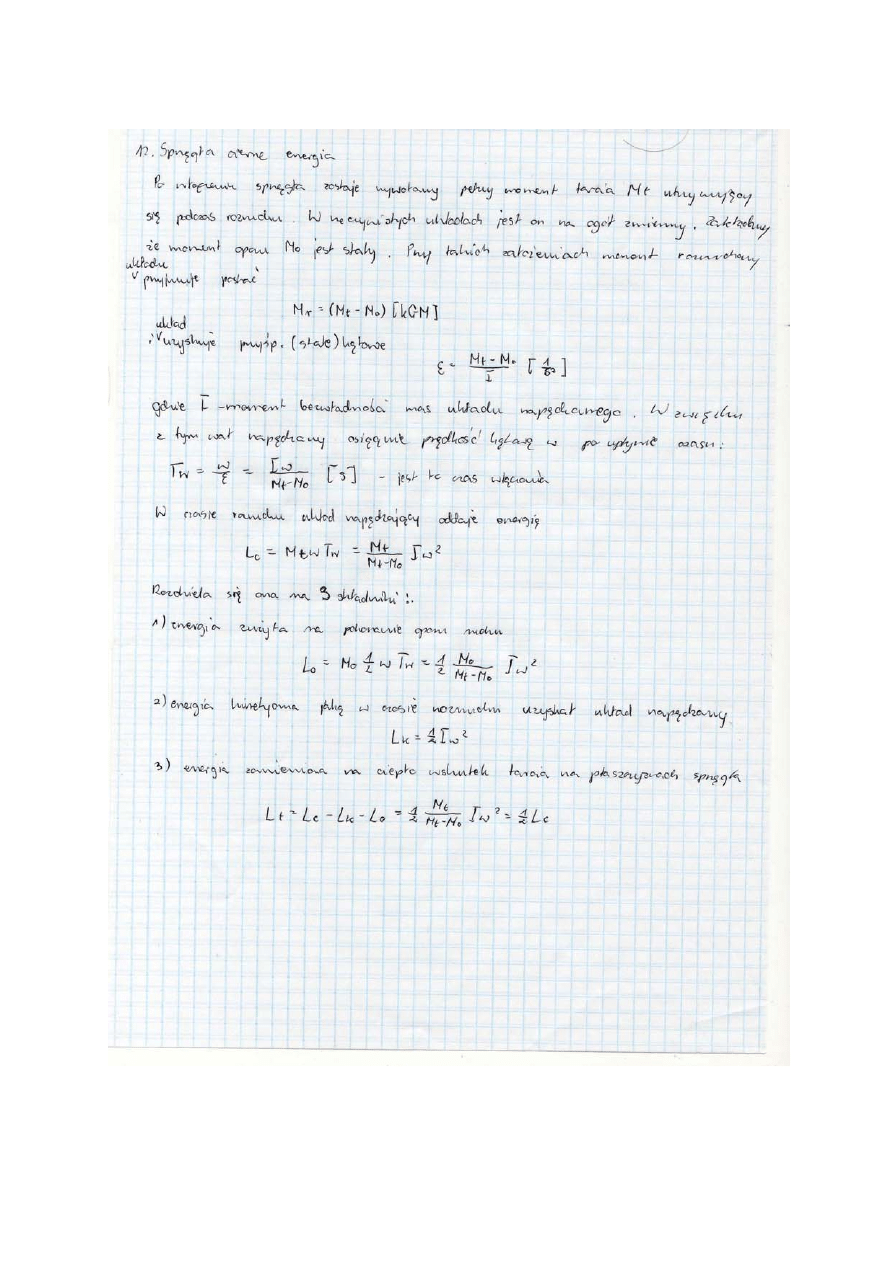 12. Sprzęgła cierne energia
Po włączeniu sprzęgła zostaje wywołany pełny moment tarcia Mt utrzymujący
się podczas rozruchu. W rzeczywistych układach jest on na ogół zmienny. Zakładamy
że moment oporu Mo jest stały. Przy takich założeniach moment rozruchowy
układu
przyjmuje postać
Mr = (Mt - Mo) [kGM]
układ
i uzyskuje przysp. (stałe) kątowe
ε = (Mt - Mo)/I [1/s²]
gdzie I - moment bezwładności mas układu napędzanego. W związku
z tym wał napędzany osiągnie prędkość kątową ω po upływie czasu:
Tw = ω/ε = Iω/(Mt-Mo) [s] - jest to czas włączania
W czasie rozruchu układ napędzający oddaje energię
Lc = Mt ω Tw = Mt/(Mt-Mo) Iω²
Rozdziela się ona na 3 składniki:
1) energia zużyta na pokonanie oporu ruchu
Lo = Mo 1/2 ω Tw = 1/2 Mo/(Mt-Mo) Iω²
2) energia kinetyczna jaką w czasie rozruchu uzyskał układ napędzany
Lk = 1/2 Iω²
3) energia zamieniona na ciepło wskutek tarcia na płaszczyznach sprzęgła
Lt = Lc - Lk - Lo = 1/2 Mt/(Mt-Mo) Iω² = 1/2 Lc